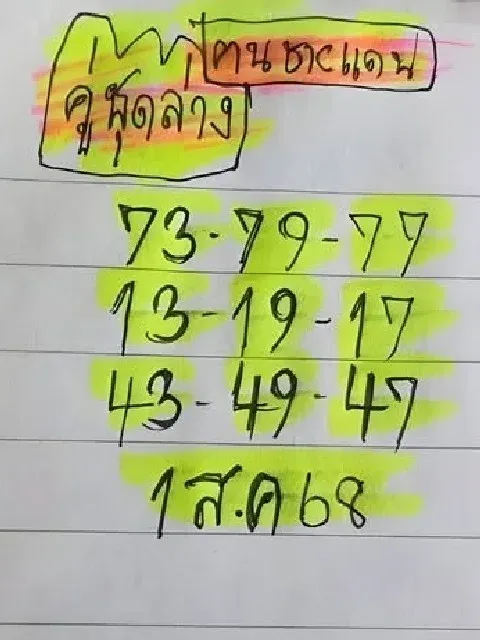 ฅนชายแดน
คู่ชุดล่าง
73-79-77
13-19-17
43-49-47
1 ส.ค 68